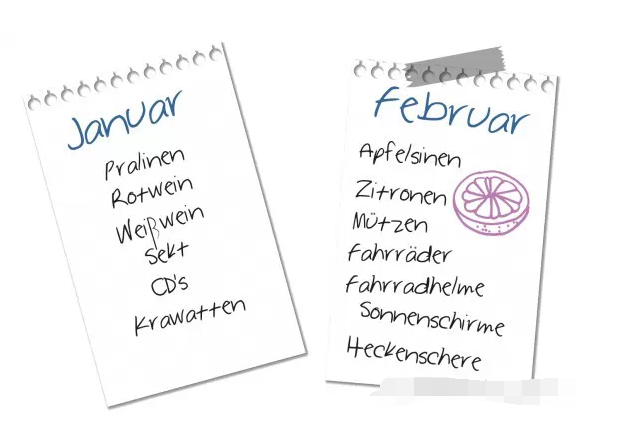 Januar
Pralinen
Rotwein
Weißwein
Sekt
CD's
Krawatten
Februar
Apfelsinen
Zitronen
Mützen
Fahrräder
Fahrradhelme
Sonnenschirme
Heckenschere